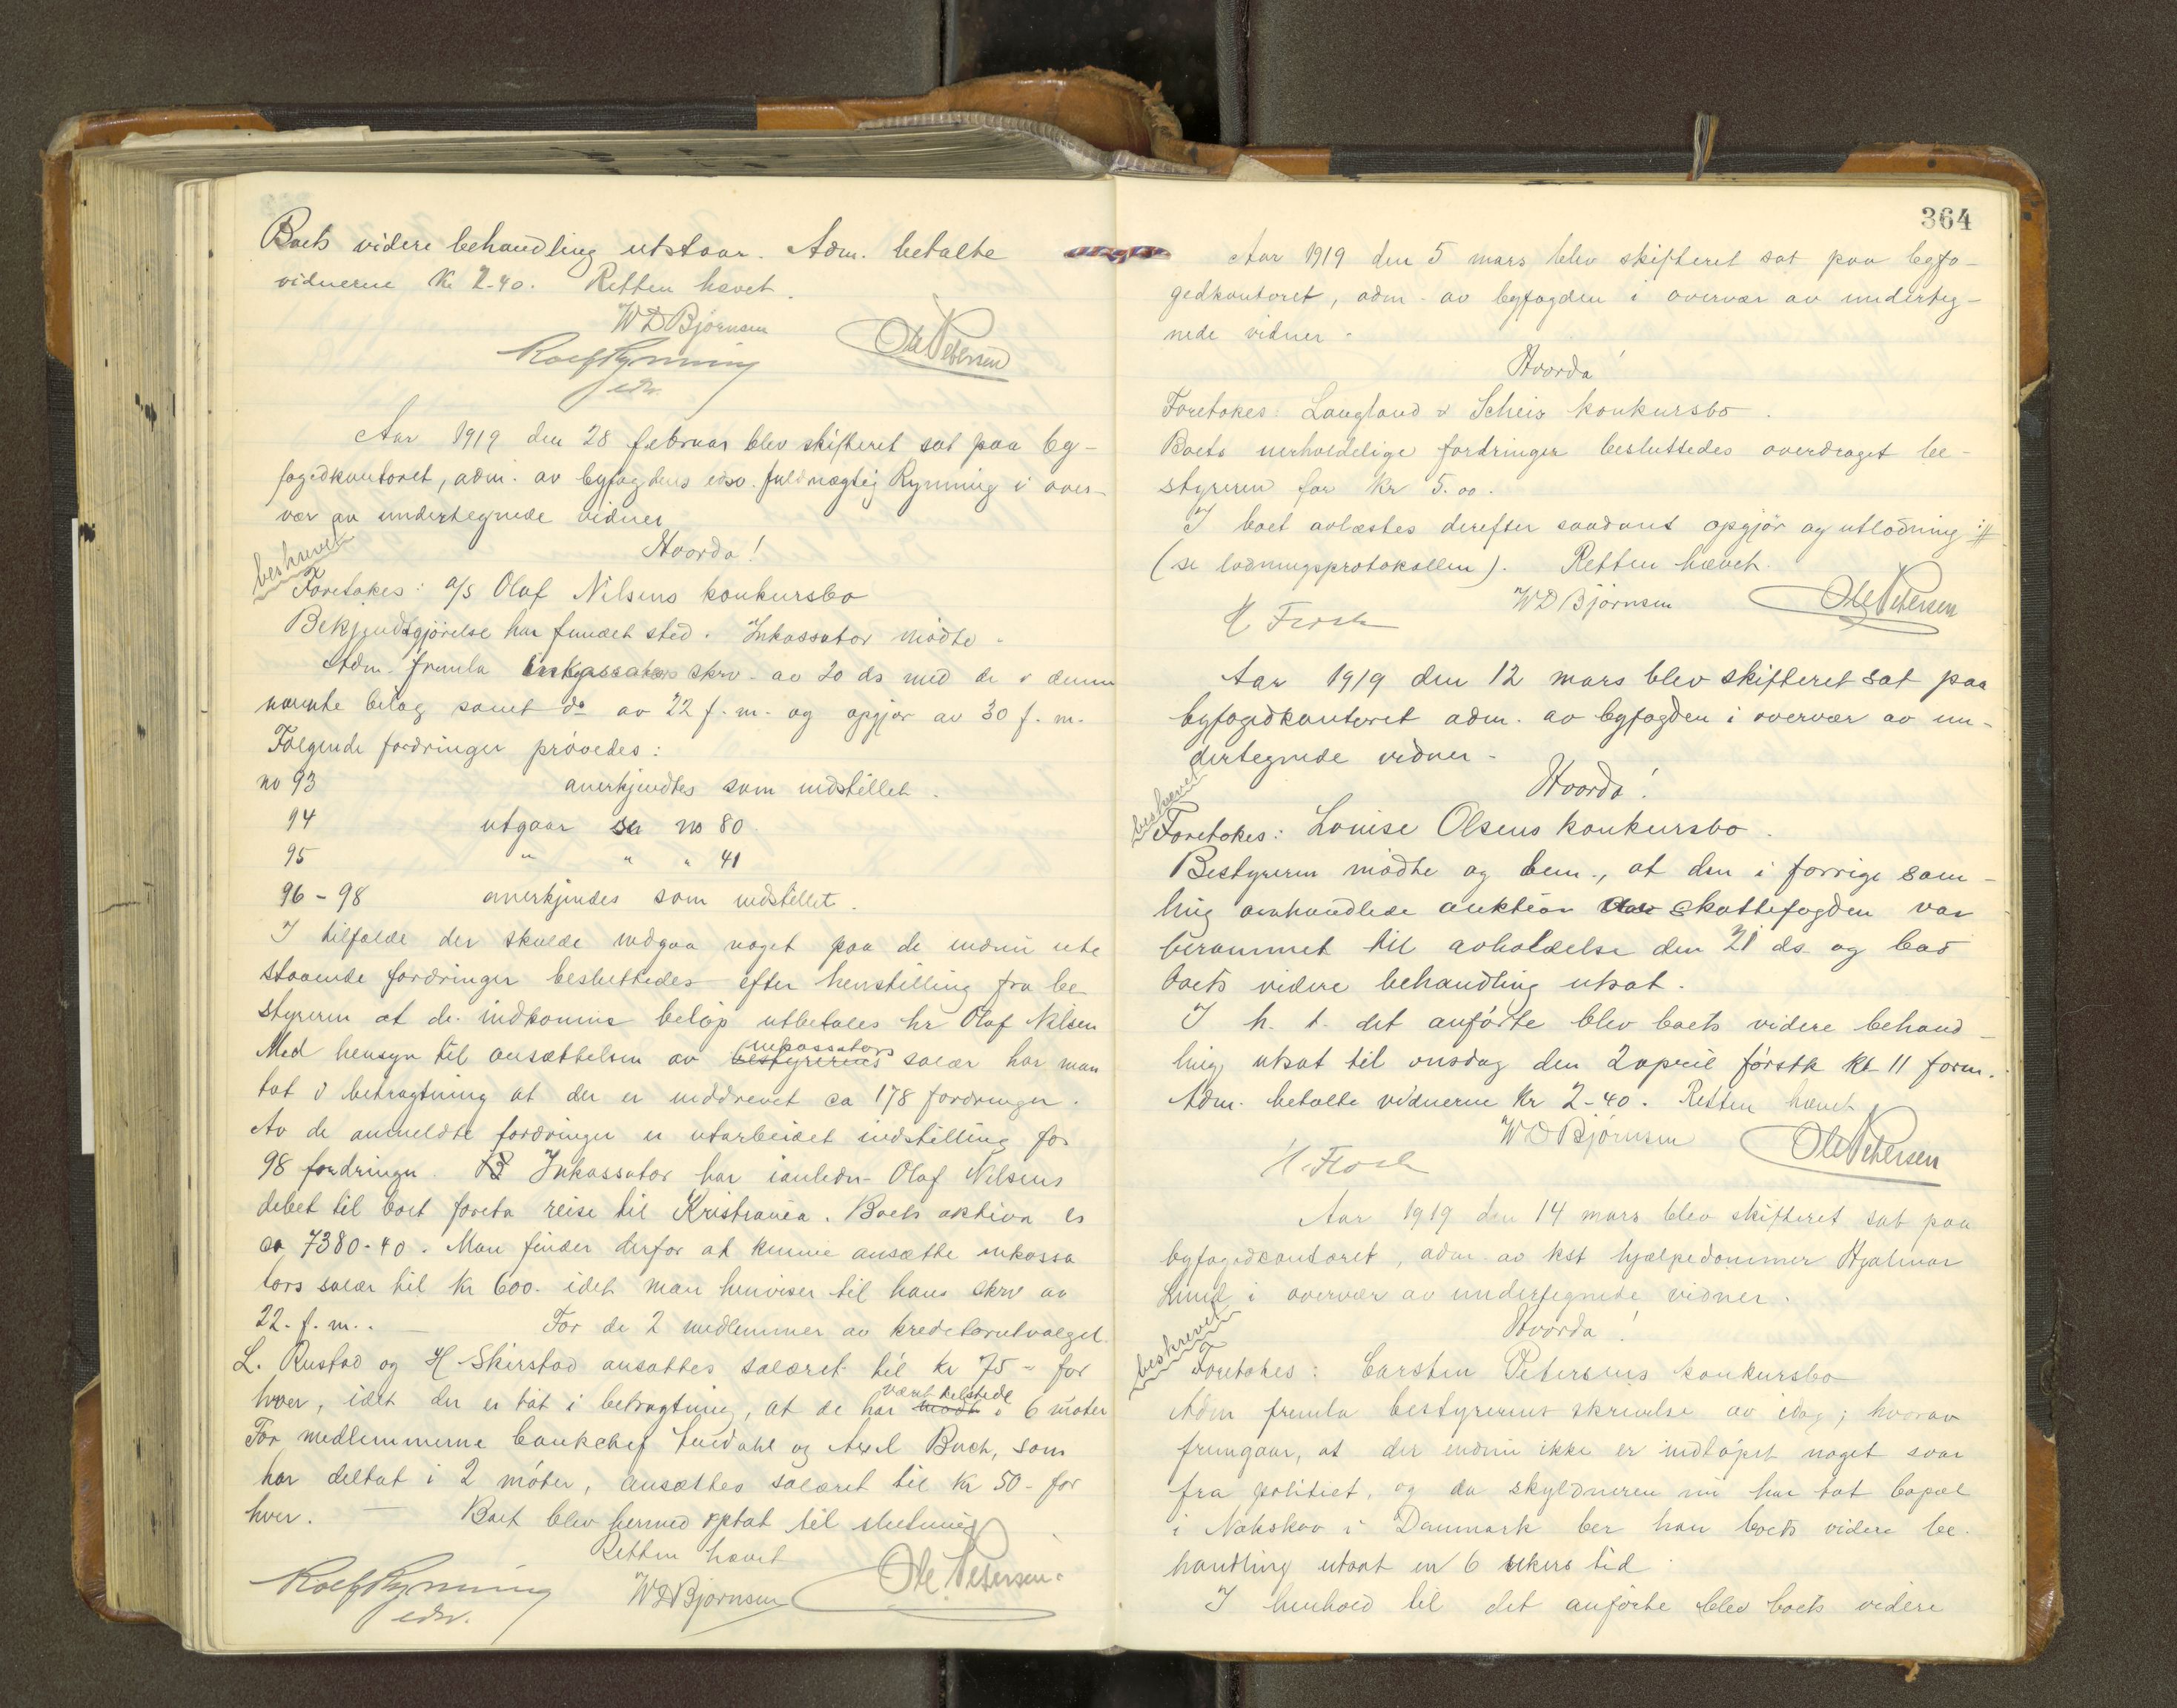 Boets videre behandling utstaar. Adm. betalte
vidnerne Kr 2.40. Retten hævet.
W D Bjørnsen
Rolf Rynning Ole Petersen
edsv.
Aar 1919 den 28 februar blev skifteret sat paa by-
fogedkontoret, adm. av byfogdens edsv. fuldmægtig Rynning i over-
vær av undertegnede vidner
Hvorda!
beskrevet
Foretokes: A/S Olaf Nilsens konkursbo
Bekjendtgjörelse har fundet sted. Inkassator mödte.
Adm. fremla inkassators skrv. av 20 ds med de i denne
nævnte bilag samt do av 22 f.m. og opgjør av 30 f.m.
Fölgende fordringer prövedes:
no 93 anerkjendtes som indstillet.
94 utgaar se no 80
95 " " " 41
96-98 anerkjendes som indstillet.
I tilfælde der skulde indgaa noget paa de endnu ute
staaende fordringer besluttedes efter henstilling fra be
styreren at de indkomne beløp utbetales hr Olaf Nilsen
inkassators
Med hensyn til ansættelsen av bestyrerens salær har man
tat i betragtning at der er inddrevet ca 178 fordringer.
Av de anmeldte fordringer er utarbeidet indstilling for
98 fordringer. Inkassator har i anledn. Olaf Nilsens
debet til boet foreta reise til Kristiania. Boets aktiva er
ca 7380.40. Man finder derfor at kunne ansætte inkassa
tors salær til kr 600. idet man henviser til hans skrv av
22. f. m.. — For de 2 medlemmer av kreditorutvalget
L. Rustad og H Skirstad ansattes salæret til kr 75 - for
været tilstede
hver, idet der er tat i betragtning, at de har mödt i 6 möter
For medlemmerne bankchef Lucdahl og Axel Buch, som
har deltat i 2 möter, ansættes salæret til kr 50 - for
hver. — Boet blev hermed optat til slutning
Retten hævet
Rolf Rynning W D Bjørnsen Ole Petersen.
edsv.
364
Aar 1919 den 5 mars blev skifteret sat paa byfo-
gedkontoret, adm. av byfogden i overvær av underteg-
nede vidner.
Hvorda!
Foretokes: Langland & Scheis konkursbo.
Boets uerholdelige fordringer besluttedes overdraget be-
styreren for Kr 5.00.
I boet avlæstes derefter saadant opgjör og utlodning :#
(se lodningsprotokollen). Retten hævet.
H Frosh W D Bjørnsen Ole Petersen
Aar 1919 den 12 mars blev skifteret sat paa
byfogedkontoret adm. av byfogden i overvær av un-
dertegnede vidner.
Hvorda!
beskrevet
Foretokes: Louise Olsens konkursbo.
Bestyreren mödte og bem., at den i forrige sam-
ling omhandlede auktion skattefogden var
berammet til avholdelse den 21 ds. og bad
boets videre behandling utsat.
I h. t. det anförte blev boets videre behand-
ling utsat til onsdag den 2 april förstk kl 11 form.
Adm. betalte vidnerne Kr 2-40. Retten hævet
W D Bjørnsen Ole Petersen
H. Frosh
Aar 1919 den 14 mars blev skifteret sat paa
byfogedkontoret, adm. av kst hjælpedommer Hjalmar
Lund i overvær av undertegnede vidner.
Hvorda!
beskrevet
Foretokes: Carsten Petersens konkursbo
Adm fremla bestyrerens skrivelse av idag, hvorav
fremgaar, at der endnu ikke er indlöpet noget svar
fra politiet, og da skyldneren nu har tat bopæl
i Nakskov i Danmark ber han boets videre be-
handling utsat en 6 ukers tid.
I henhold til det anförte blev boets videre